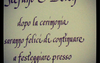 dopo la cerimonia
saranno felici di continuare
a festeggiare presso